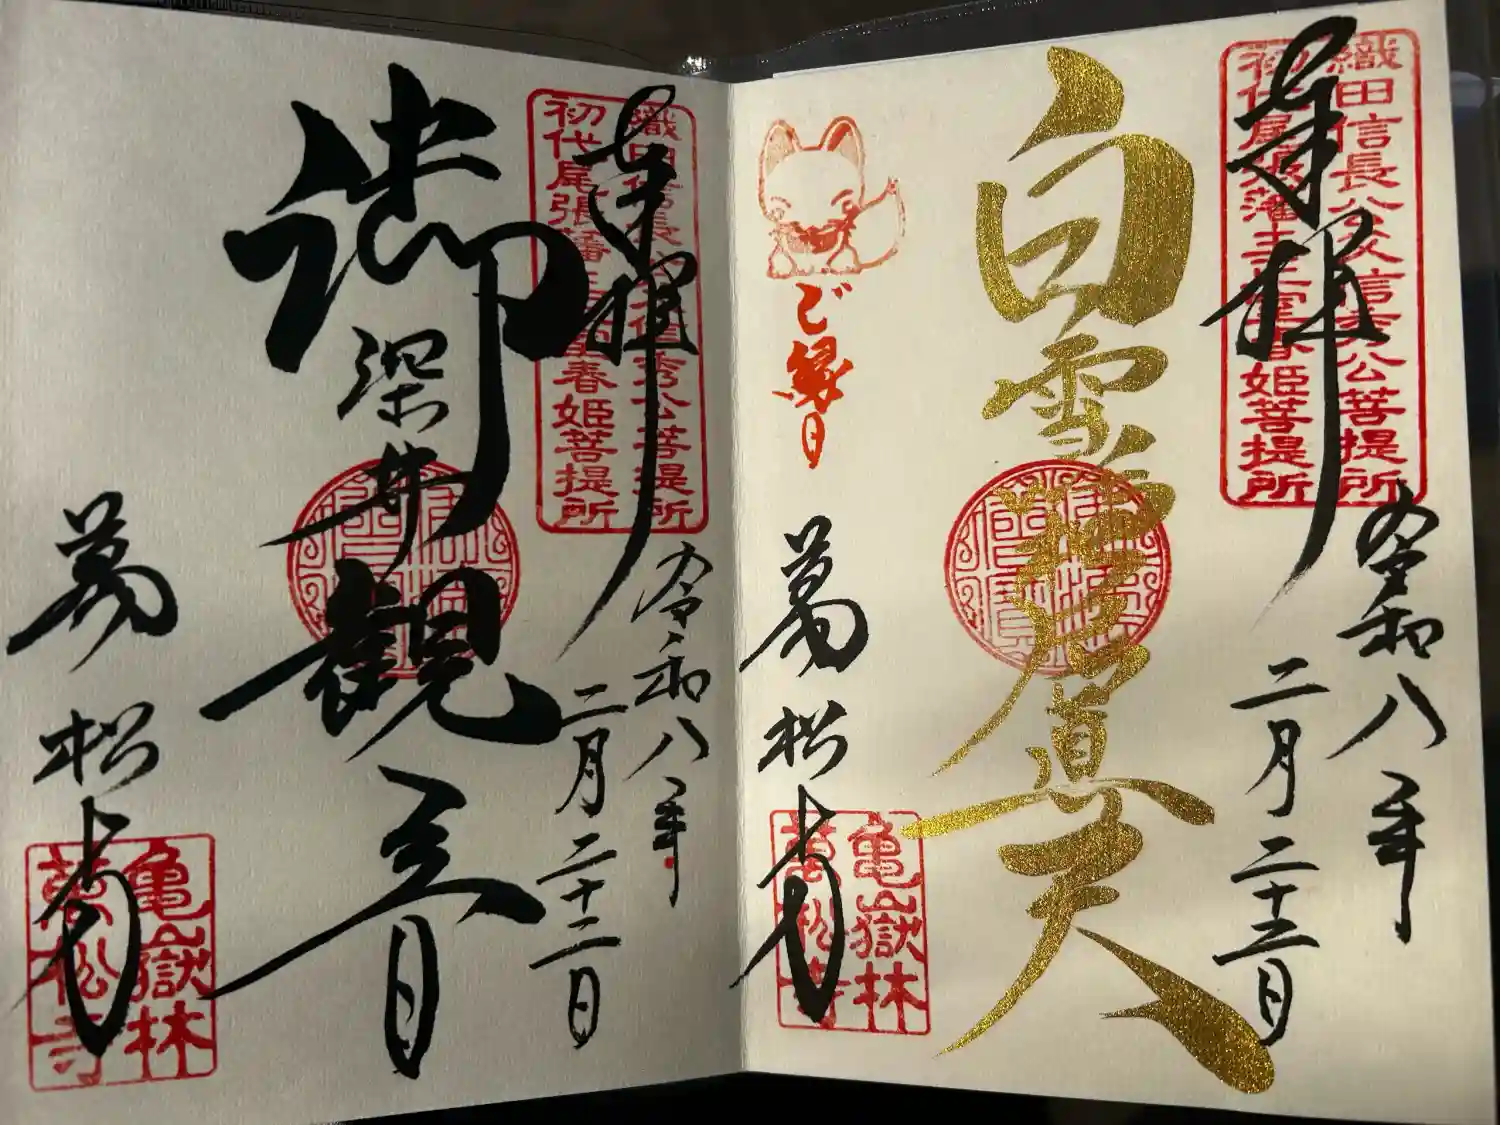 奉拝
織田信長公父信秀公菩提所
初代尾張藩主正室春姫菩提所
令和八年
二月二十三日
白雪吒枳尼眞天
ご縁日
萬松寺
亀嶽林
萬松寺
奉拝
織田信長公父信秀公菩提所
初代尾張藩主正室春姫菩提所
令和八年
二月二十三日
御深井観音
萬松寺
亀嶽林
萬松寺